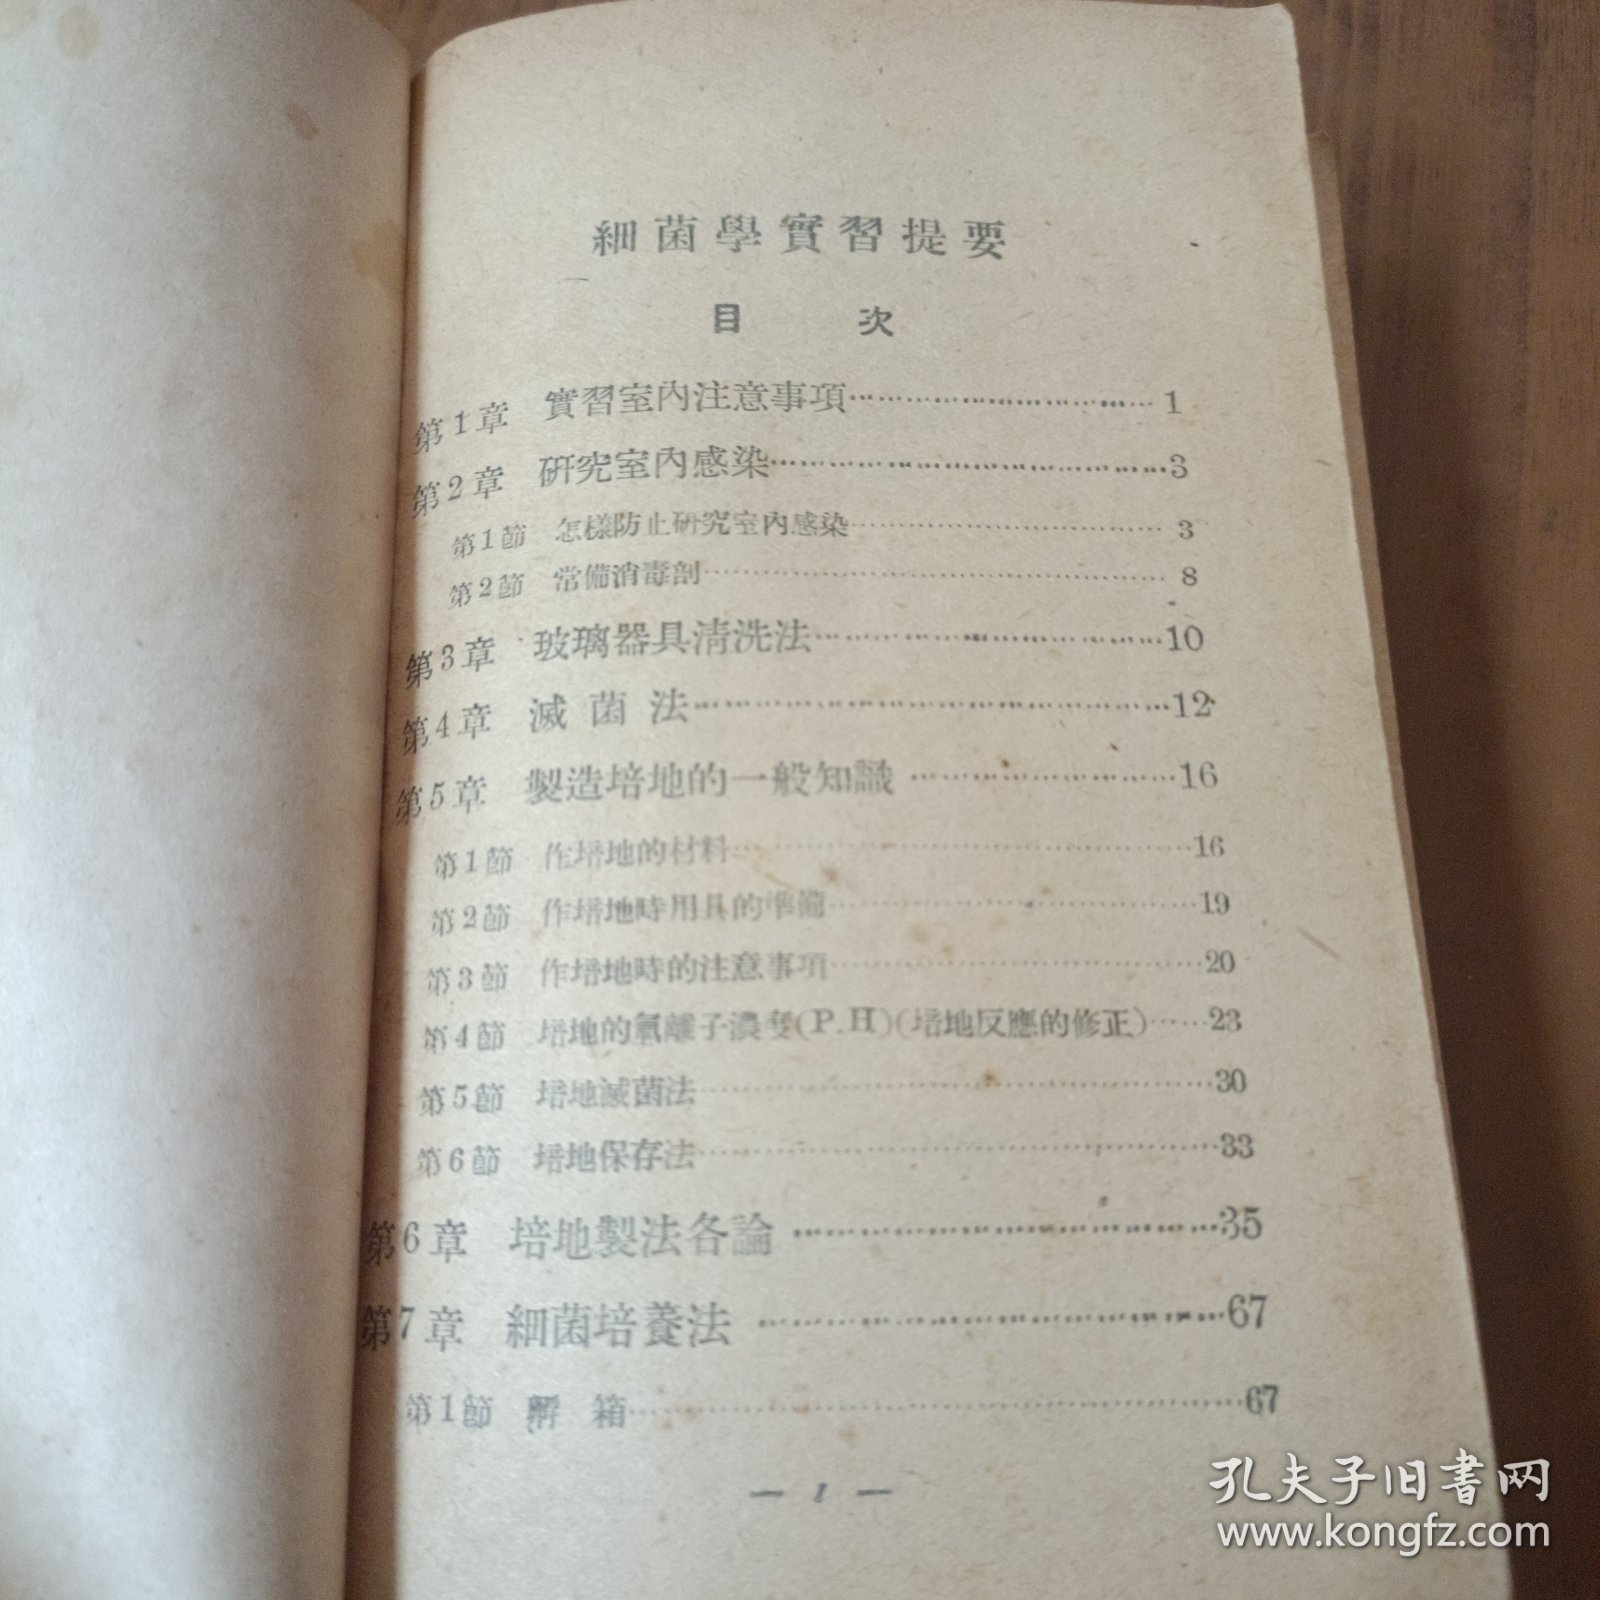 細菌學實習提要
目 次
第1章 實習室內注意事項……………………1
第2章 硏究室內感染……………………3
第1節 怎樣防止硏究室內感染……………………3
第2節 常備消毒劑……………………8
第3章 玻璃器具清洗法……………………10
第4章 滅菌法……………………12
第5章 製造培地的一般知識……………………16
第1節 作培地的材料……………………16
第2節 作培地時用具的準備……………………19
第3節 作培地時的注意事項……………………20
第4節 培地的氫離子濃度(P.H)(培地反應的修正)……23
第5節 培地滅菌法……………………30
第6節 培地保存法……………………33
第6章 培地製法各論……………………35
第7章 細菌培養法……………………67
第1節 孵箱……………………67
— 1 —
孔夫子旧書网
www.kongfz.com